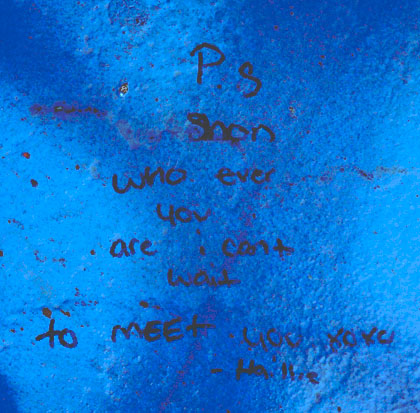 P.S
Shon
who ever
you
are i cant
wait
to MEEt you xoxo
- Hallie